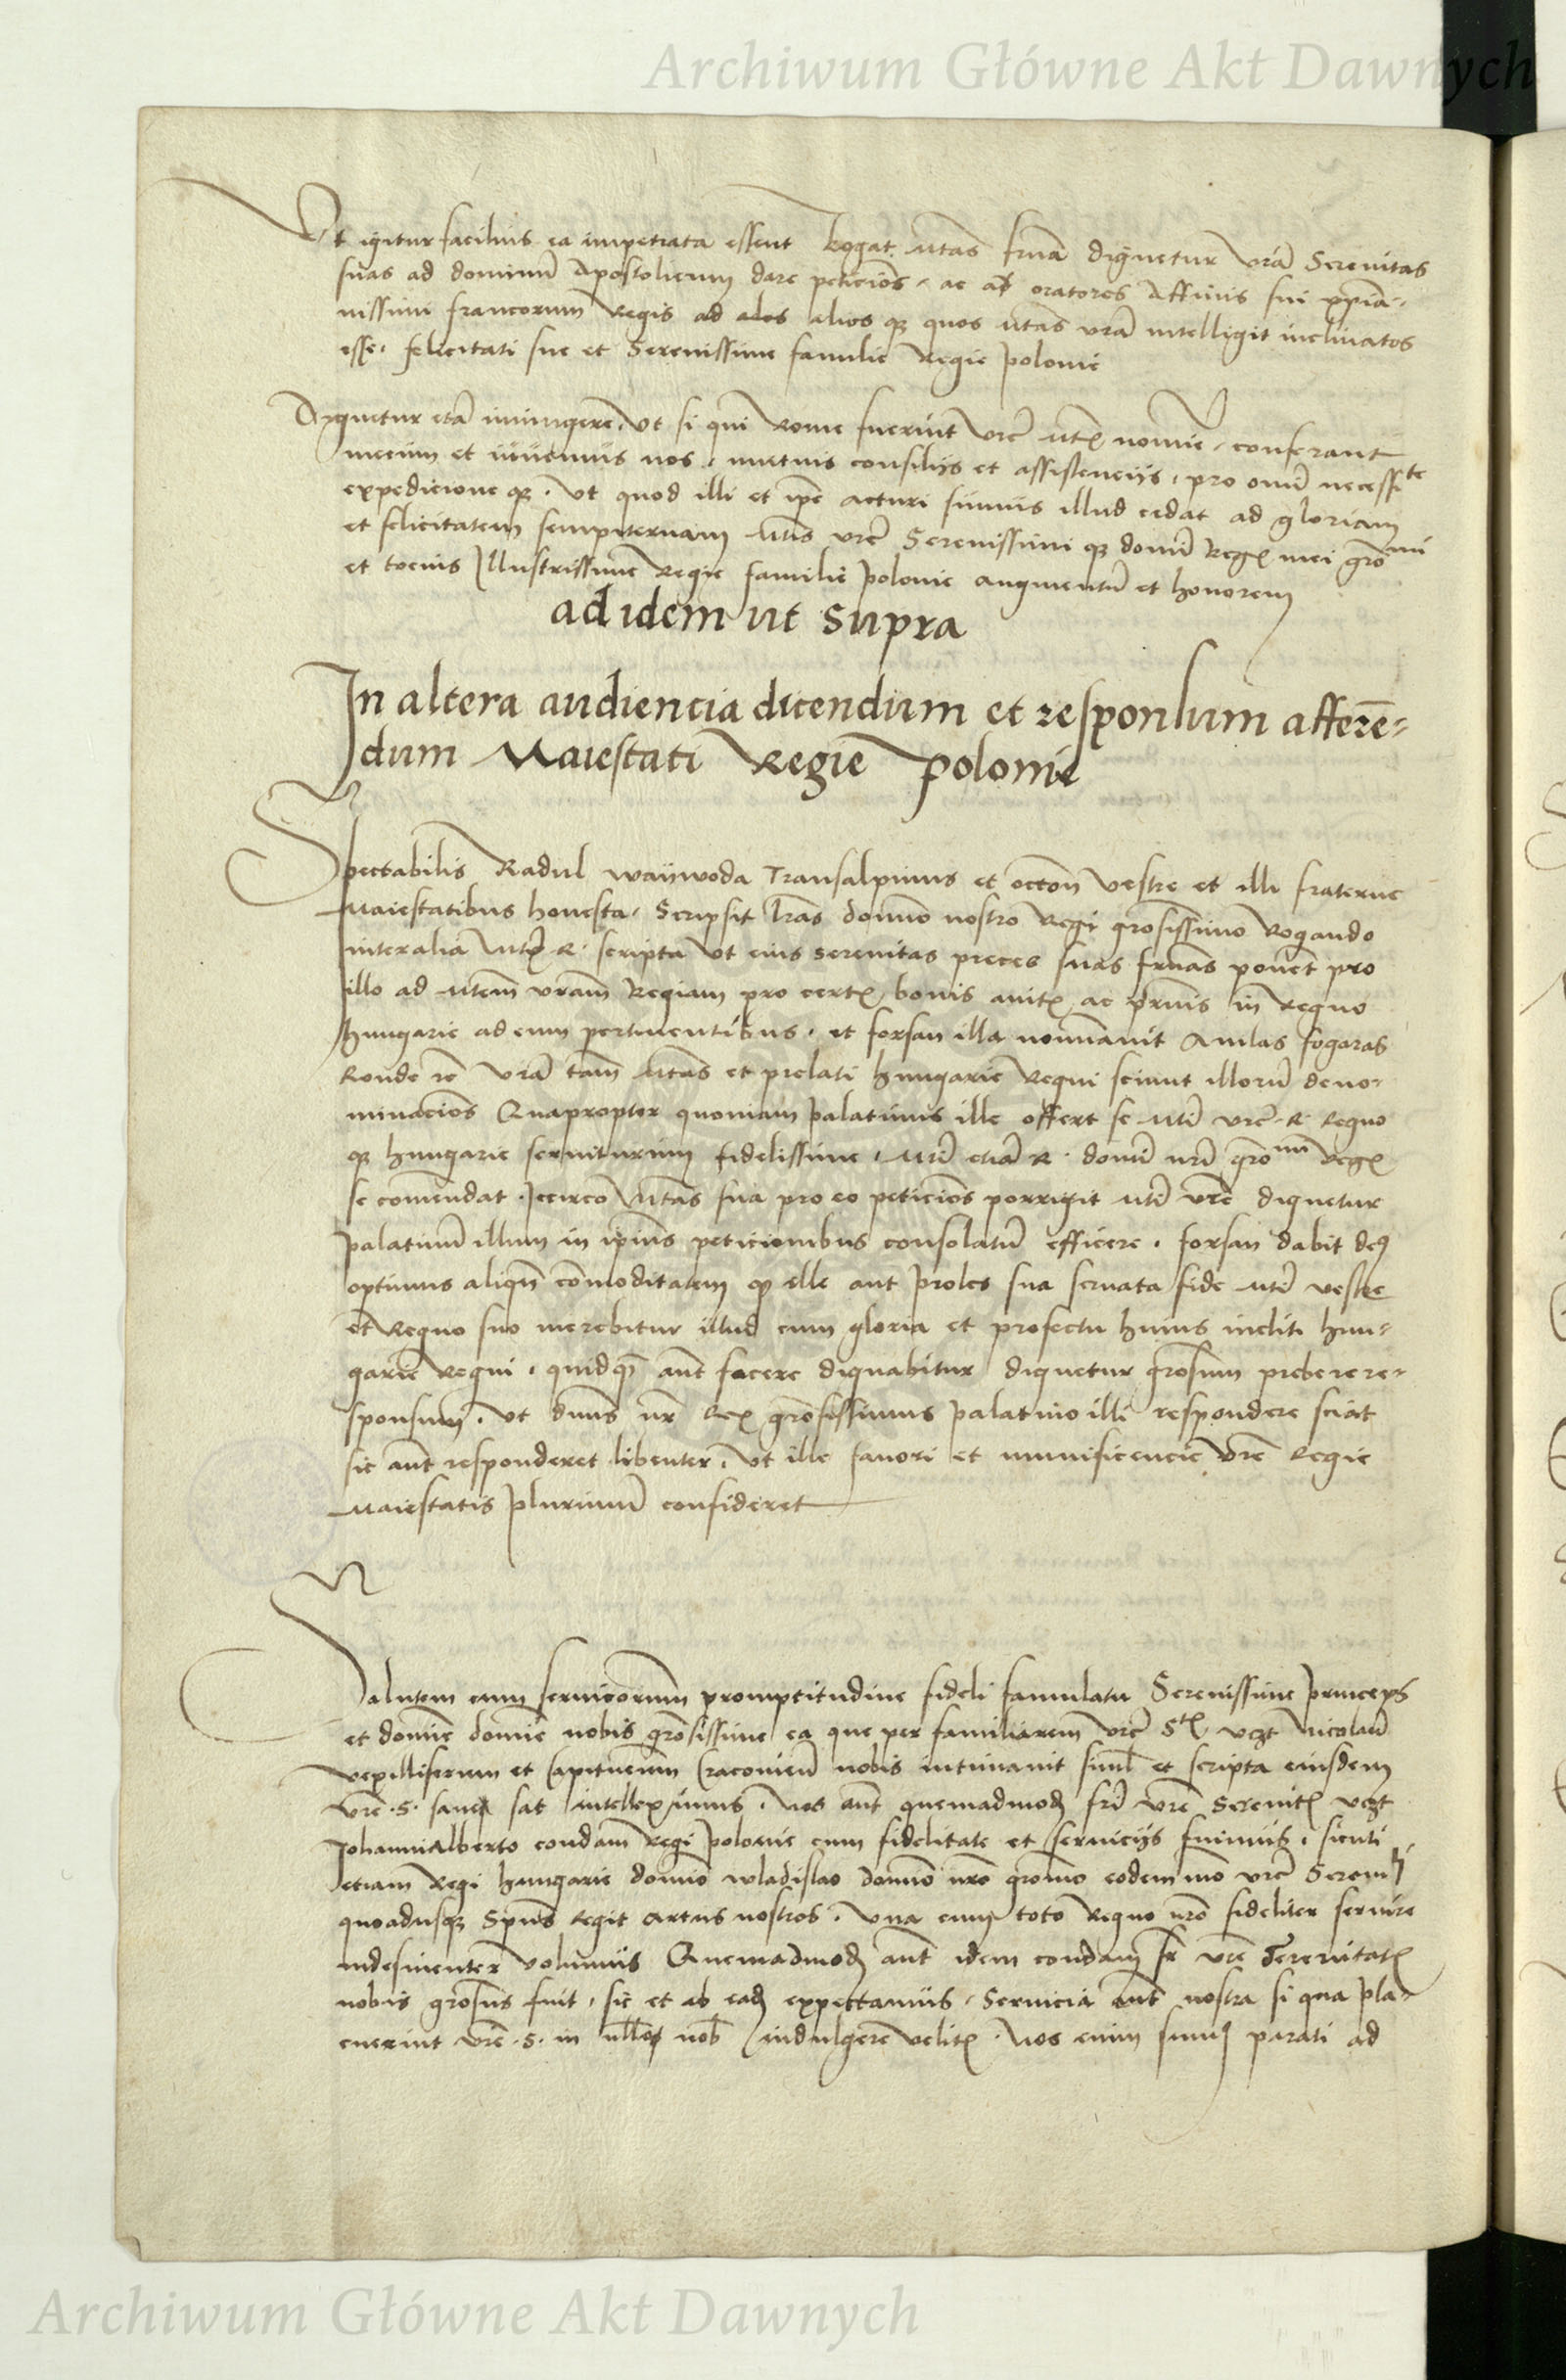 Archiwum Główne Akt Dawnych
Ut igitur facilius ea impetrata essent Rogat Mtas fruã dignetur vrã Serenitas
suas ad dominũ Apostolicum dare peticiões, ac ad oratores Affinis sui xpiã-
nissimi francorum Regis ad alos alios qz quos Mtas vrã intelligit inclinatos
esse, felicitati sue et Serenissime familie Regie polonie
Dignetur etiã iniungere, ut si qui Rome fuerint vrẽ Mtꝭ nomine, conferant
mecum et iuvemus nos, mutuis consilijs et assistencijs, pro oium necessite
expedicione qz. ut quod illi et ipẽ acturi sumus illud cedat ad gloriam
et felicitatem sempiternam Mtis vrẽ Serenissimi qz domĩ Regꝭ mei grõmi
et tocius Illustrissime Regie familie polonie augmentũ et honorem
ad idem ut supra
In altera audiencia dicendum et responsum afferẽ-
dum Maiestati Regie polonie
Spectabilis Radul waiiwoda Transalpinus et vestre et illi fraterne
Maiestatibus honesta. Scripsit lrãs domino nostro Regi grõsissimo Rogando
interalia R. scripta ut eius serenitas preces suas frnas ponet pro
illo ad Mtem vram Regiam pro certꝭ bonis avitꝭ ac prnis in Regno
hungarie ad eum pertinentibus, et forsan illa nominavit Amlas fogaras
vrã tam Mtas et prelati hungarie Regni sciunt illorũ deno-
minaciões Quapropter quoniam palatinus ille offert se Mti vrẽ R. Regno
qz hungarie serviturum fidelissime, Mti etiã R. domĩ nrĩ grõmi Regꝭ
se comendat. Iccirco Mtas sua pro eo peticiões porrigit Mti vrẽ dignetur
palatinũ illum in ipius peticionibus consolatũ efficere. forsan dabit deꝰ
optimus aliqñ cõmoditatem qz ille aut proles sua servata fide Mti vestre
et Regno suo merebitur illud cum gloria et profectu huius incliti hun-
garie Regni, quidqz aut facere dignabitur dignetur grõsum prebere re-
sponsum. ut dnũs nr̃ Rex grõsissimus palatino illi respondere sciat
sic aut responderet libenter, ut ille favori et munificencie vrẽ Regie
Maiestatis plurimũ confideret
Salutem cum serviciorum promptitudine fideli famulatu Serenissime princeps
et domine domine nobis grõsissime ea que per familiarem vrẽ Stꝭ vczt Nicolaũ
vexilliferum et Capitneum Cracovieñ nobis intimavit simul et scripta eiusdem
vrẽ. S. sane sat intelleximus. Nos aut quemadmodũ fri vrẽ Serenitꝭ vczt
Johannialberto condam Regi polonie cum fidelitate et servicijs fuimus, sicuti
etiam Regi hungarie domino wladislao domino nrõ grõmo eodem mo vrẽ
quoadusqz Spũs Regit artus nostros. Una cum toto Regno nrõ fideliter servire
indesinenter volumus Quemadmodũ aut idem condam fr vrẽ Serenitatꝭ
nobis grõsus fuit, sic et ab eadẽ expectamus. Servicia aut nostra si qua pla-
cuerint vrẽ. S. in nobis indulgere velitꝭ. Nos enim sumꝰ parati ad
Archiwum Główne Akt Dawnych